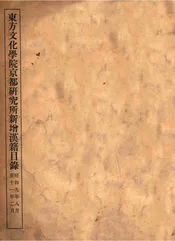 東方文化學院京都研究所新增漢籍目錄
昭和九年八月
至十一年二月